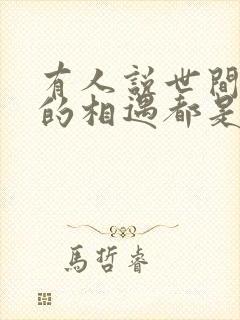 有人説世間
的相遇都是
馬哲睿